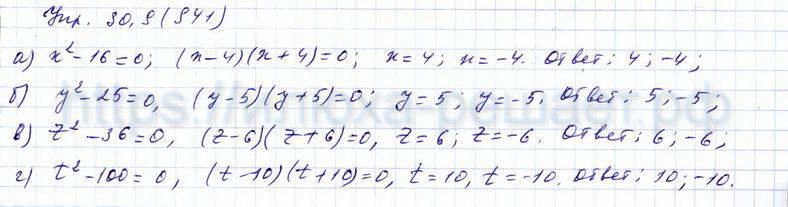 Упр. 30,9 (941)
а) x² - 16 = 0; (x - 4)(x + 4) = 0; x = 4; x = -4. Ответ: 4; -4;
б) y² - 25 = 0, (y - 5)(y + 5) = 0; y = 5; y = -5. Ответ: 5; -5;
в) z² - 36 = 0, (z - 6)(z + 6) = 0, z = 6; z = -6. Ответ: 6; -6;
г) t² - 100 = 0, (t - 10)(t + 10) = 0, t = 10, t = -10. Ответ: 10; -10.